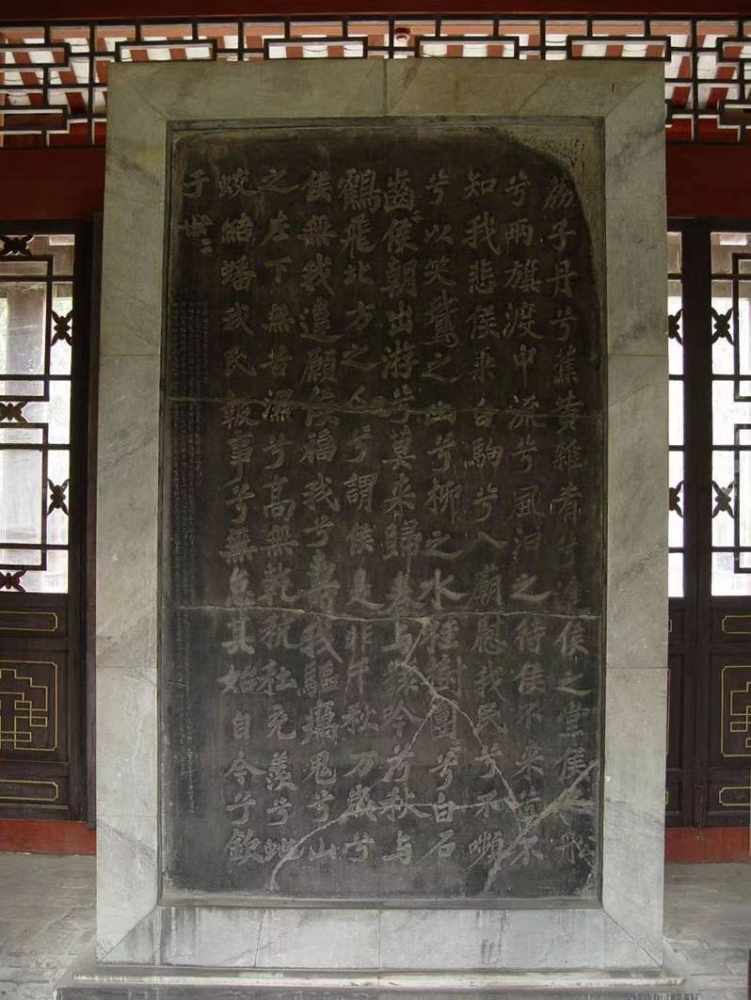 荔子丹兮蕉黄雜肴兮進侯之堂侯之船
兮兩旗渡中流兮風汩之待侯不来兮不
知我悲侯乘白駒兮入廟慰我民兮不嚬
兮以笑鵞之山兮柳之水桂樹團兮白石
齒〻侯朝出游兮莫来歸春與猨吟兮秋与
鶴飛北方之人兮謂侯是非千秋万歲兮
侯無我違願侯福我兮壽我驅癘鬼兮山
之左下無苦濕兮高無乾秔稌充羨兮蛇
蛟結蟠我民報事兮無怠其始自今兮欽
于世〻